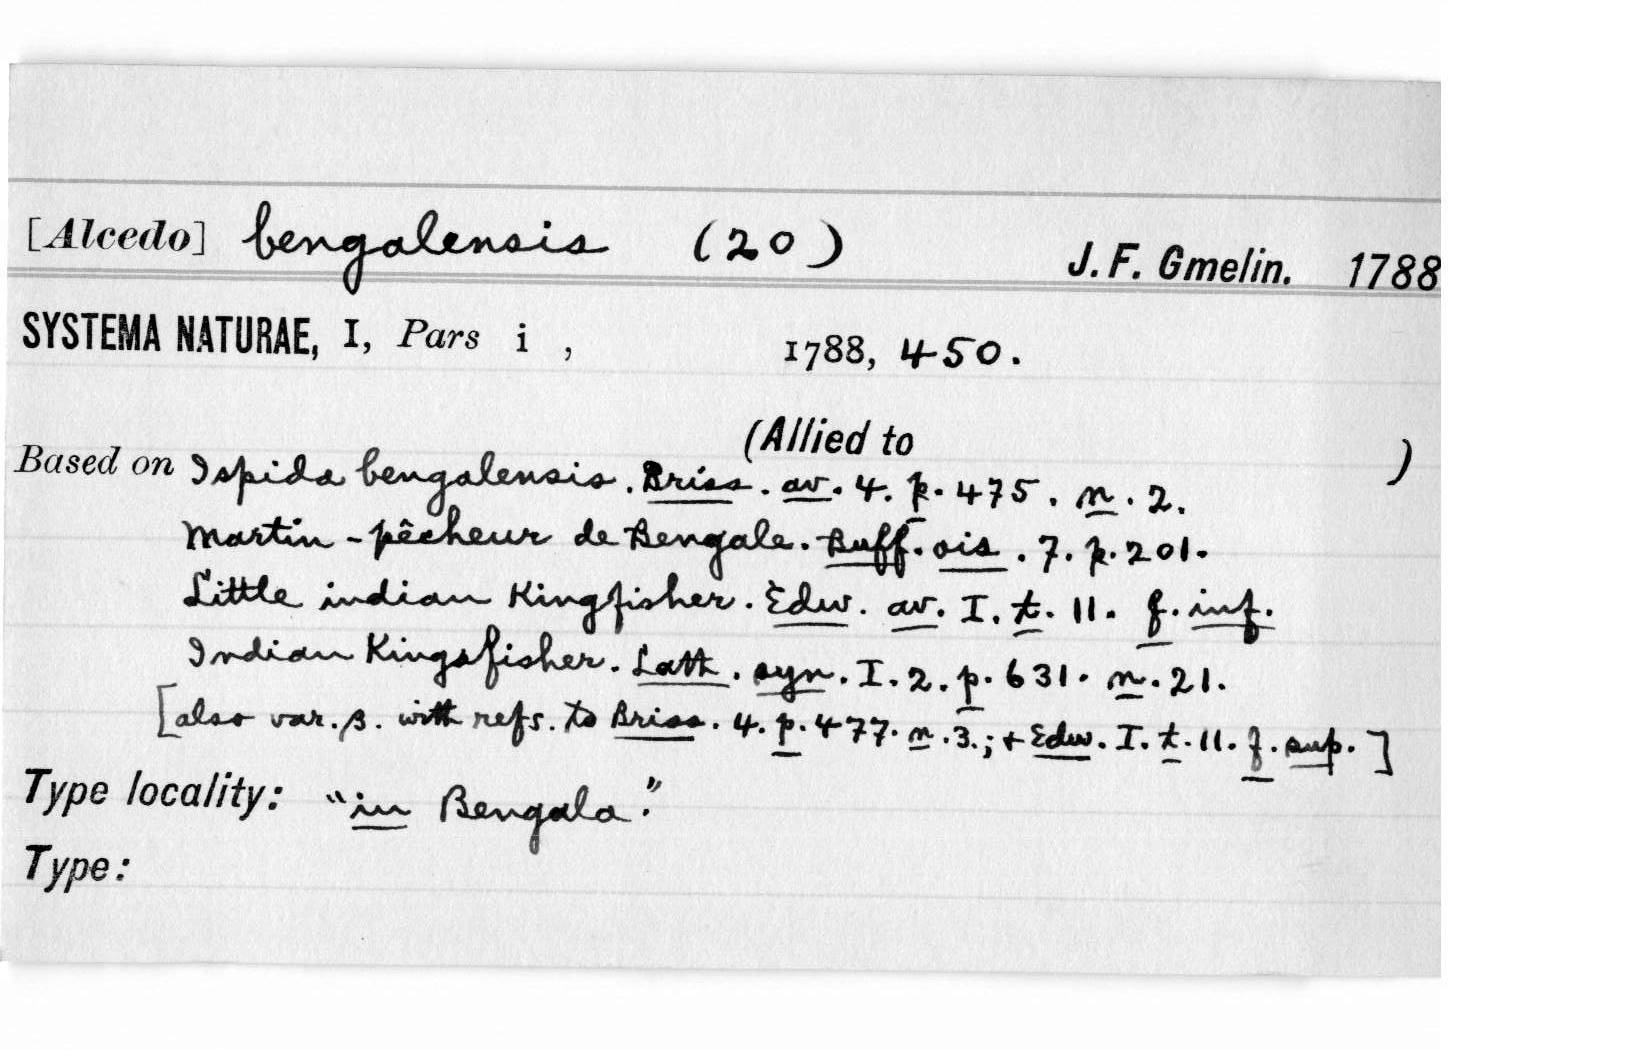 [Alcedo] bengalensis (20) J. F. Gmelin. 1788
SYSTEMA NATURAE, I, Pars i , 1788, 450.
(Allied to )
Based on Ispida bengalensis. Briss. av. 4. p. 475. n. 2.
Martin-pêcheur de Bengale. Buff. ois. 7. p. 201.
Little indian Kingfisher. Edw. av. I. t. 11. f. inf.
Indian Kingsfisher. Lath. syn. I. 2. p. 631. n. 21.
[also var. β. with refs. to Briss. 4. p. 477. n. 3.; + Edw. I. t. 11. f. sup.]
Type locality: "in Bengala."
Type: